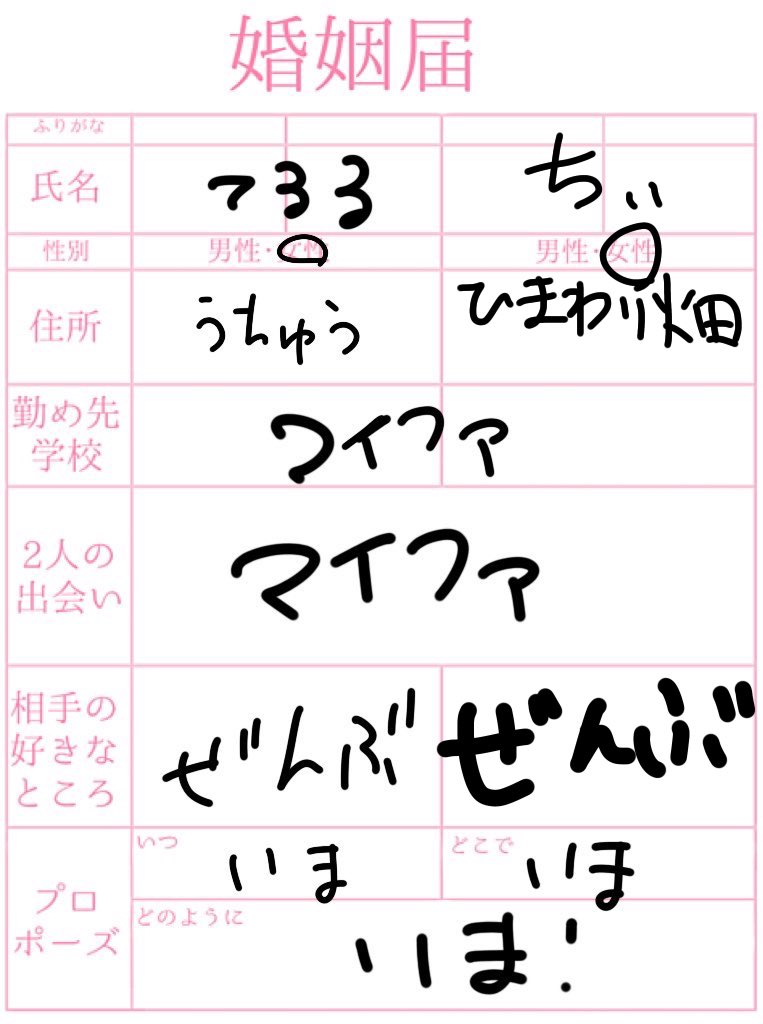 婚姻届
ふりがな
氏名 つるる ちぃ
性別 男性・女性 男性・女性
住所 うちゅう ひまわり畑
勤め先
学校
マイファ
2人の
出会い
マイファ
相手の
好きな
ところ
ぜんぶ ぜんぶ
プロ
ポーズ
いつ いま どこで いま
どのように
いま!